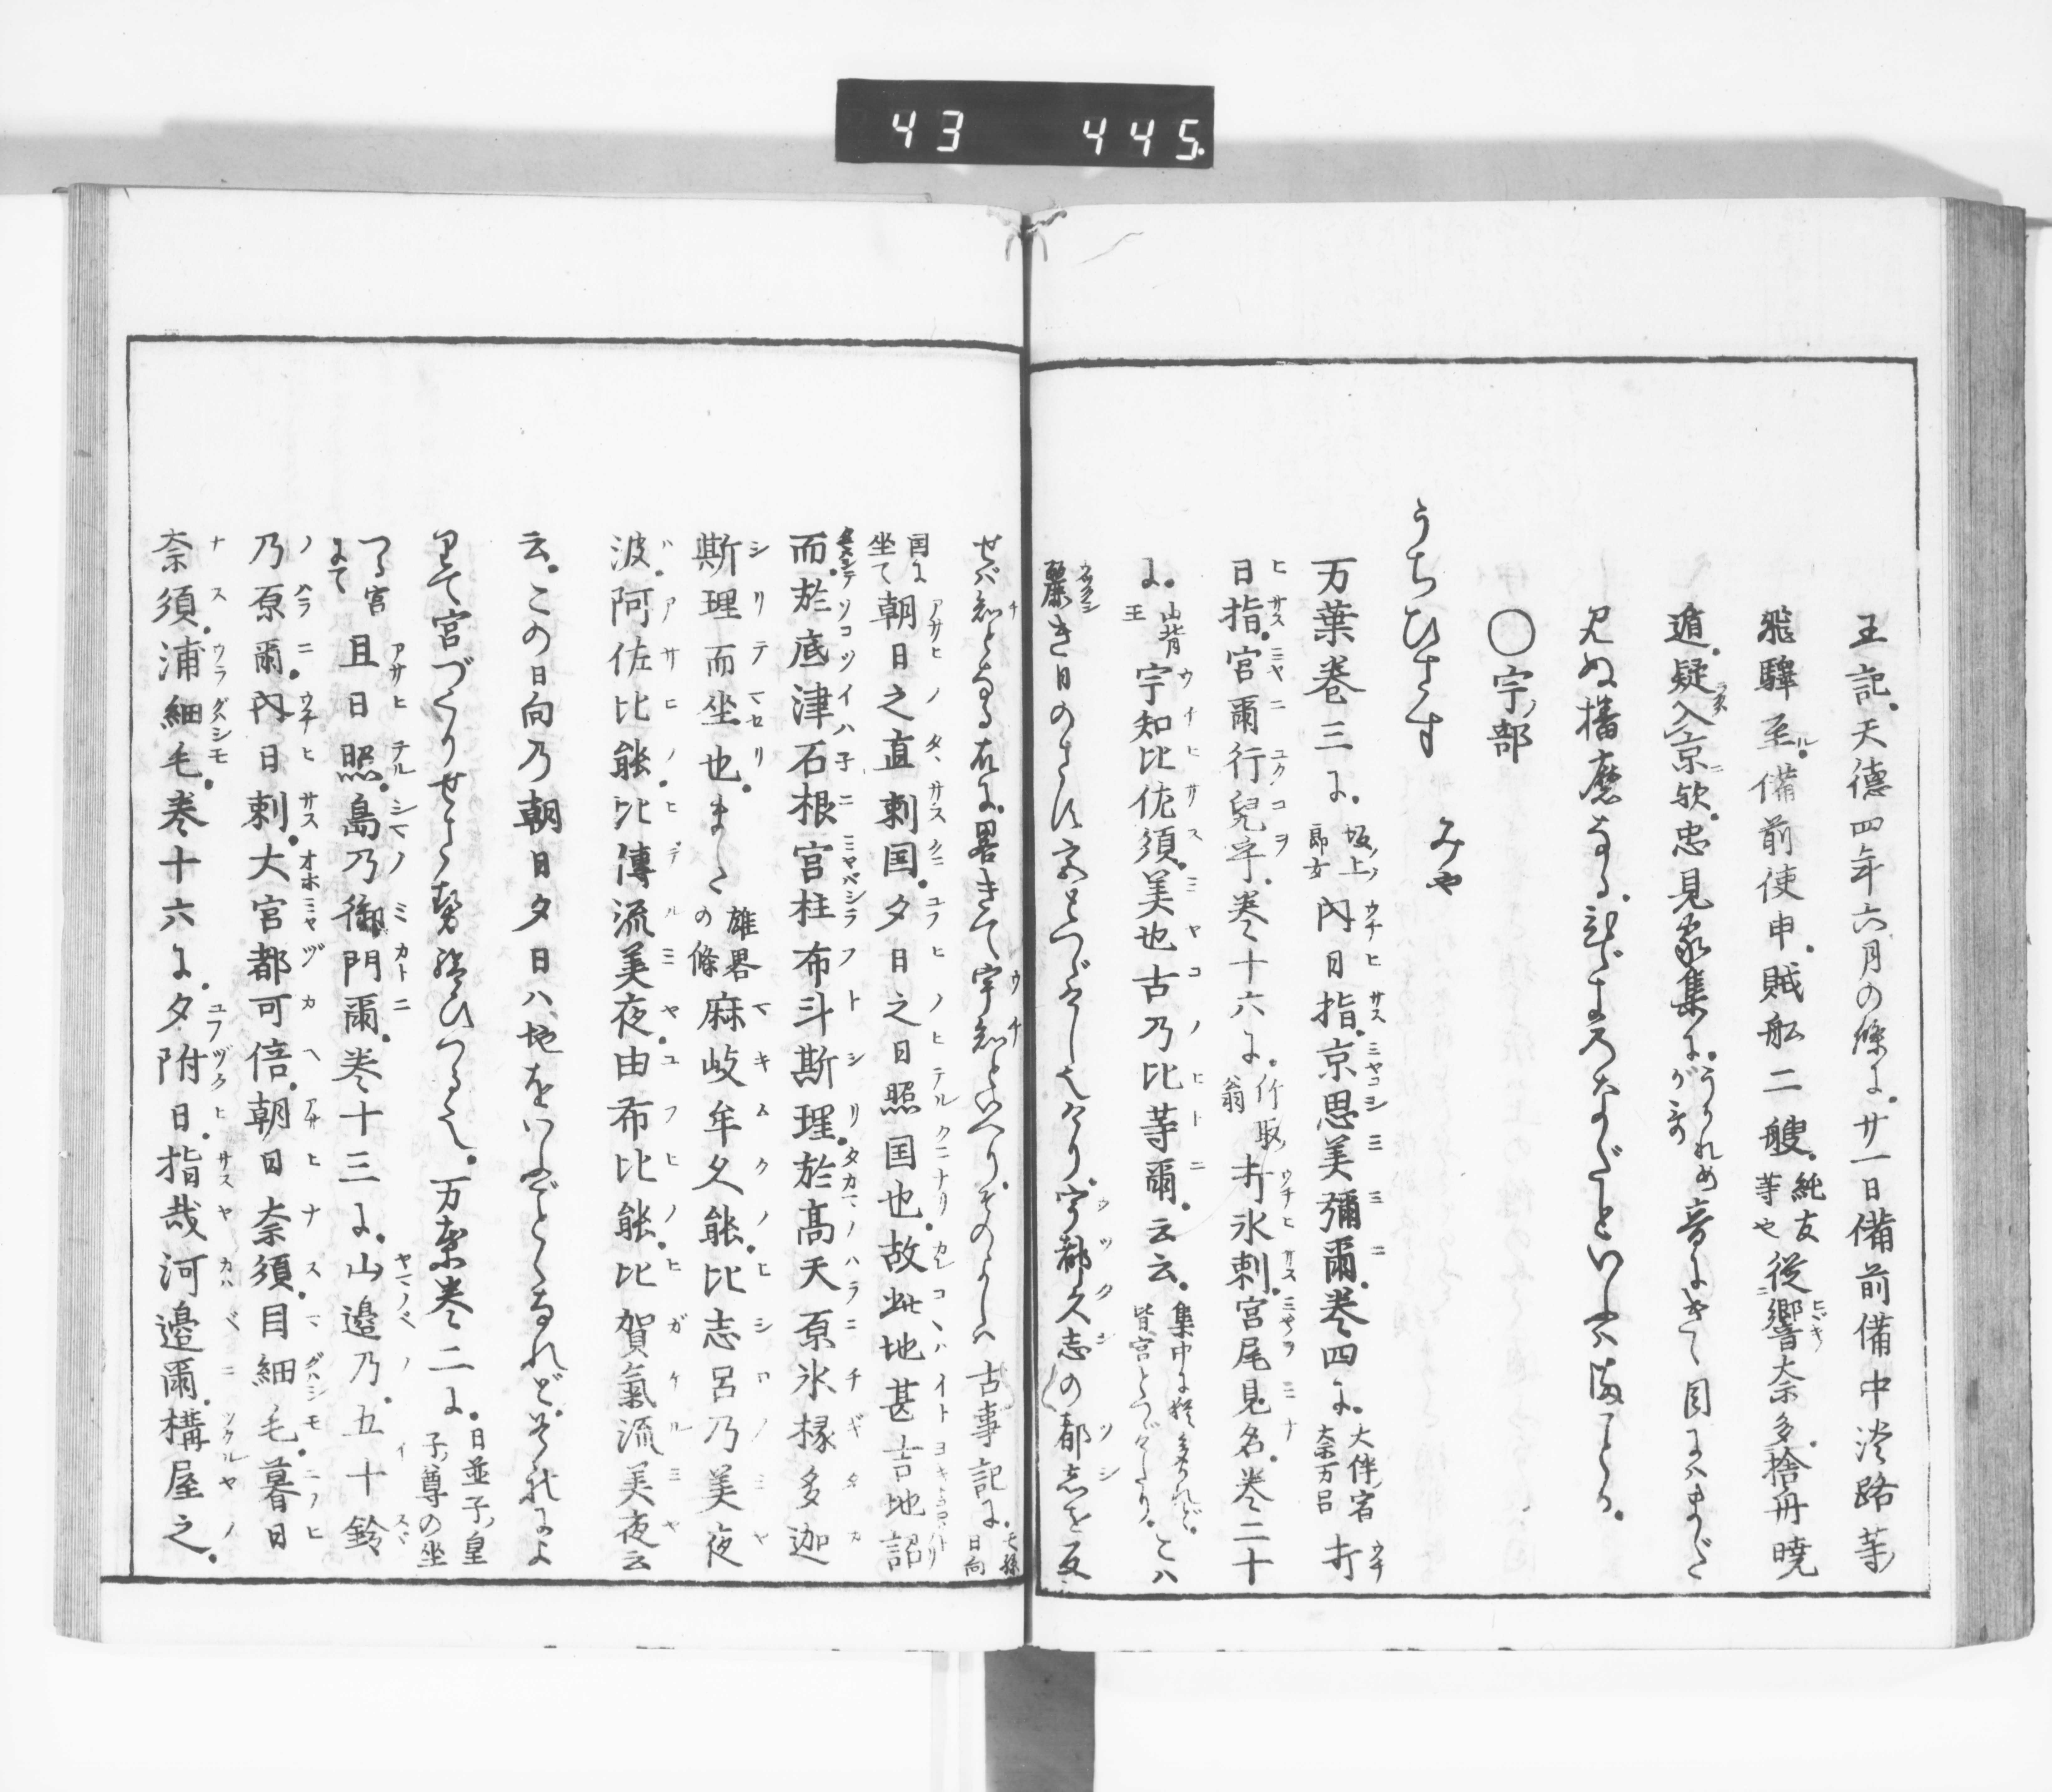 43 445
王記。天德四年六月の條に。廿一日備前備中淡路等
飛驒至ル。備前使申。賊舩二艘。純友等や従響奈多捨舟曉
遁。疑入京欤。忠見家集に。うかれめがこゑ音にきく目にハまだ
見ぬ播磨なる。ひゞきのなだといふハ
〇宇ノ部
うちひさす みや
万葉巻三に。坂ノ上ノ郎女内日指。京思美彌爾。巻四に。大伴ノ宿奈万呂打
日指。宮爾行兒乎。巻十六に。竹取ノ翁打氷刺。宮尾見名。巻二十
に。山背王宇知比佐須。美也古乃比等爾。云云。集中に猶多かれど。皆宮とつゞけたり。こハ
麗き日のさす宮とつゞけしなり。宇都久志の都志を反
せバ知となる故に。畧きて宇知といへり。そのよしハ古事記に。天孫日向
国に坐て朝日之直刺国。夕日之日照国也。故此地甚吉地詔
而。於底津石根宮柱布斗斯理。於髙天原氷椽多迦
斯理而坐也。また雄畧の條麻岐牟久能。比志呂乃美夜
波。阿佐比能。比傳流美夜。由布比能。比賀氣流美夜云
云。この日向乃朝日夕日ハ。地をいふことなれど。それによ
りて宮づくりせさせ給ひつるなり。万葉巻二に。日並子ノ皇子ノ尊の坐
つる宮にて且日照。島乃御門爾。巻十三に。山邉乃。五十鈴
乃原爾。内日刺。大宮都可倍。朝日奈須。目細毛。暮日
奈須。浦細毛。巻十六に。夕附日。指哉河邉爾。構屋之。